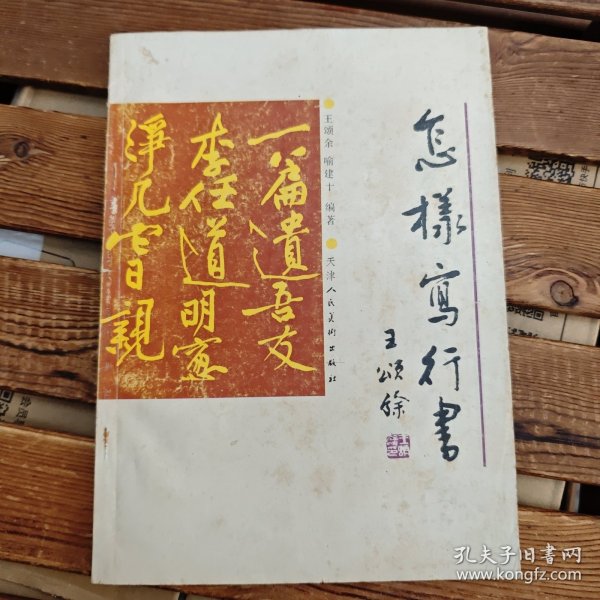 怎樣寫行書
王頌餘
王颂余 喻建十 编著
天津人民美術出版社
一篇遺吾友
李侄道明窓
淨几嘗親
孔夫子旧书网
www.kongfz.com